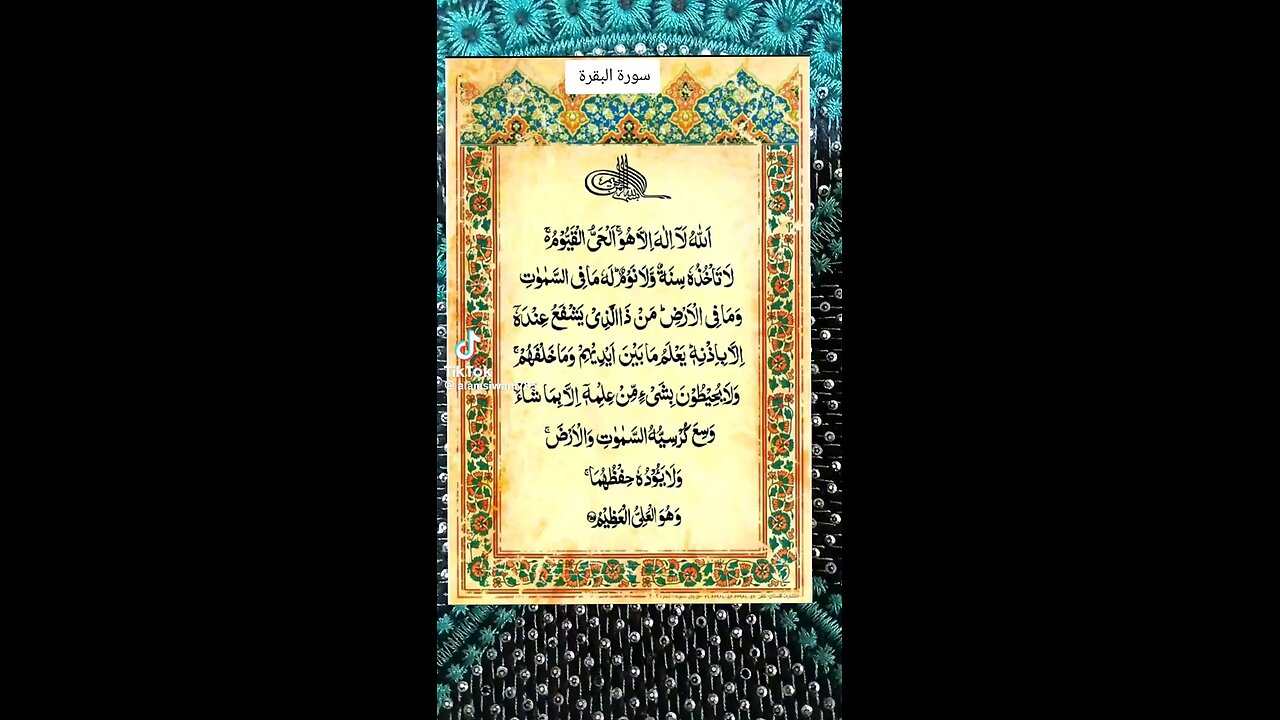 سورة البقرة
اَللّٰهُ لَآ اِلٰهَ اِلَّا هُوَۚ اَلْحَىُّ الْقَيُّوْمُ ەۚ
لَا تَاْخُذُهٗ سِنَةٌ وَّلَا نَوْمٌؕ لَهٗ مَا فِى السَّمٰوٰتِ
وَمَا فِى الْاَرْضِؕ مَنْ ذَا الَّذِىْ يَشْفَعُ عِنْدَهٗٓ
اِلَّا بِاِذْنِهٖؕ يَعْلَمُ مَا بَيْنَ اَيْدِيْهِمْ وَمَا خَلْفَهُمْۚ
وَلَا يُحِيْطُوْنَ بِشَىْءٍ مِّنْ عِلْمِهٖٓ اِلَّا بِمَا شَآءَۚ
وَسِعَ كُرْسِيُّهُ السَّمٰوٰتِ وَالْاَرْضَۚ
وَلَا يَئُوْدُهٗ حِفْظُهُمَاۚ
وَهُوَ الْعَلِىُّ الْعَظِيْمُ
TikTok